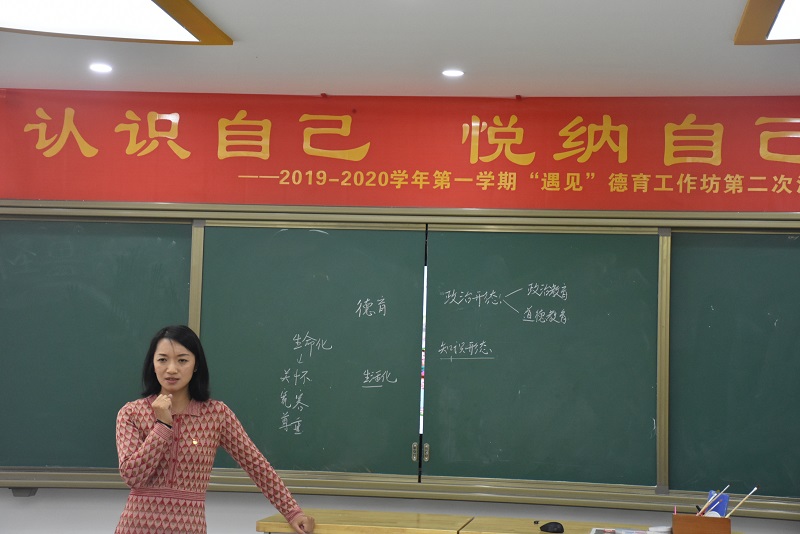 认识自己 悦纳自己
——2019-2020学年第一学期“遇见”德育工作坊第二次
德育
生命化
关怀
宽容
尊重
生活化
政治形态：
政治教育
道德教育
知识形态：